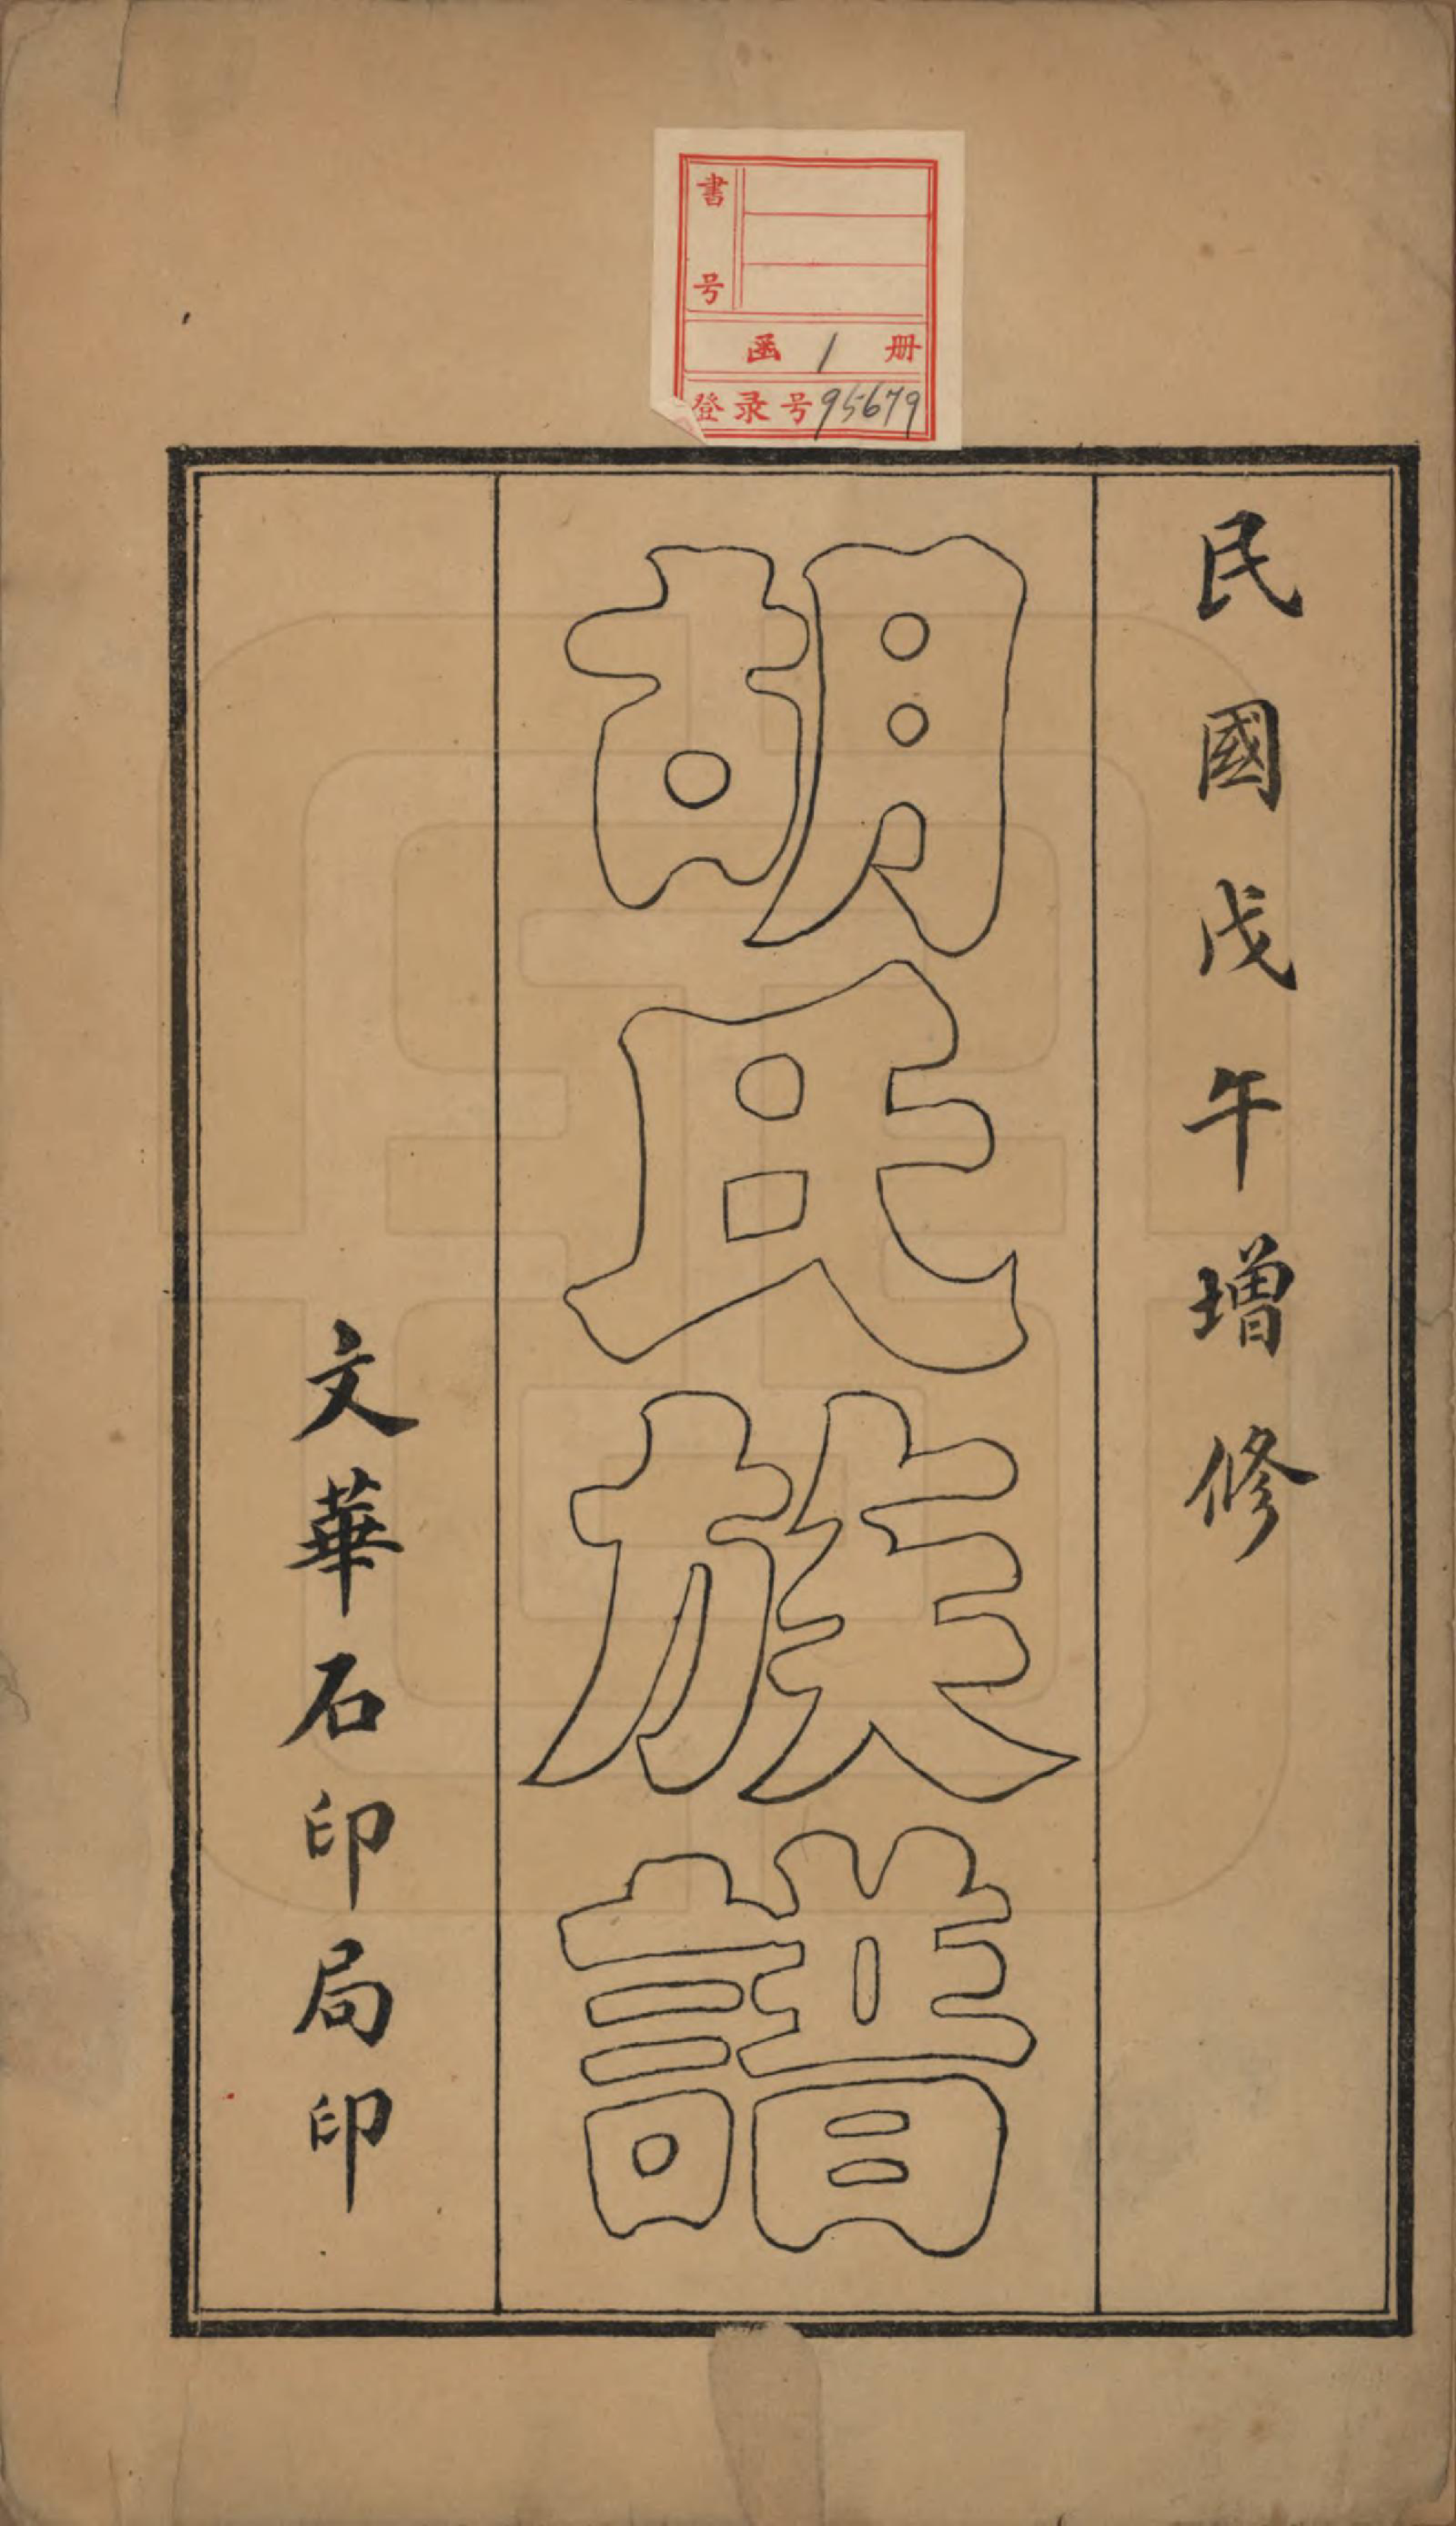 書号
函 1 册
登录号95679
民國戊午增修
胡氏族譜
文華石印局印